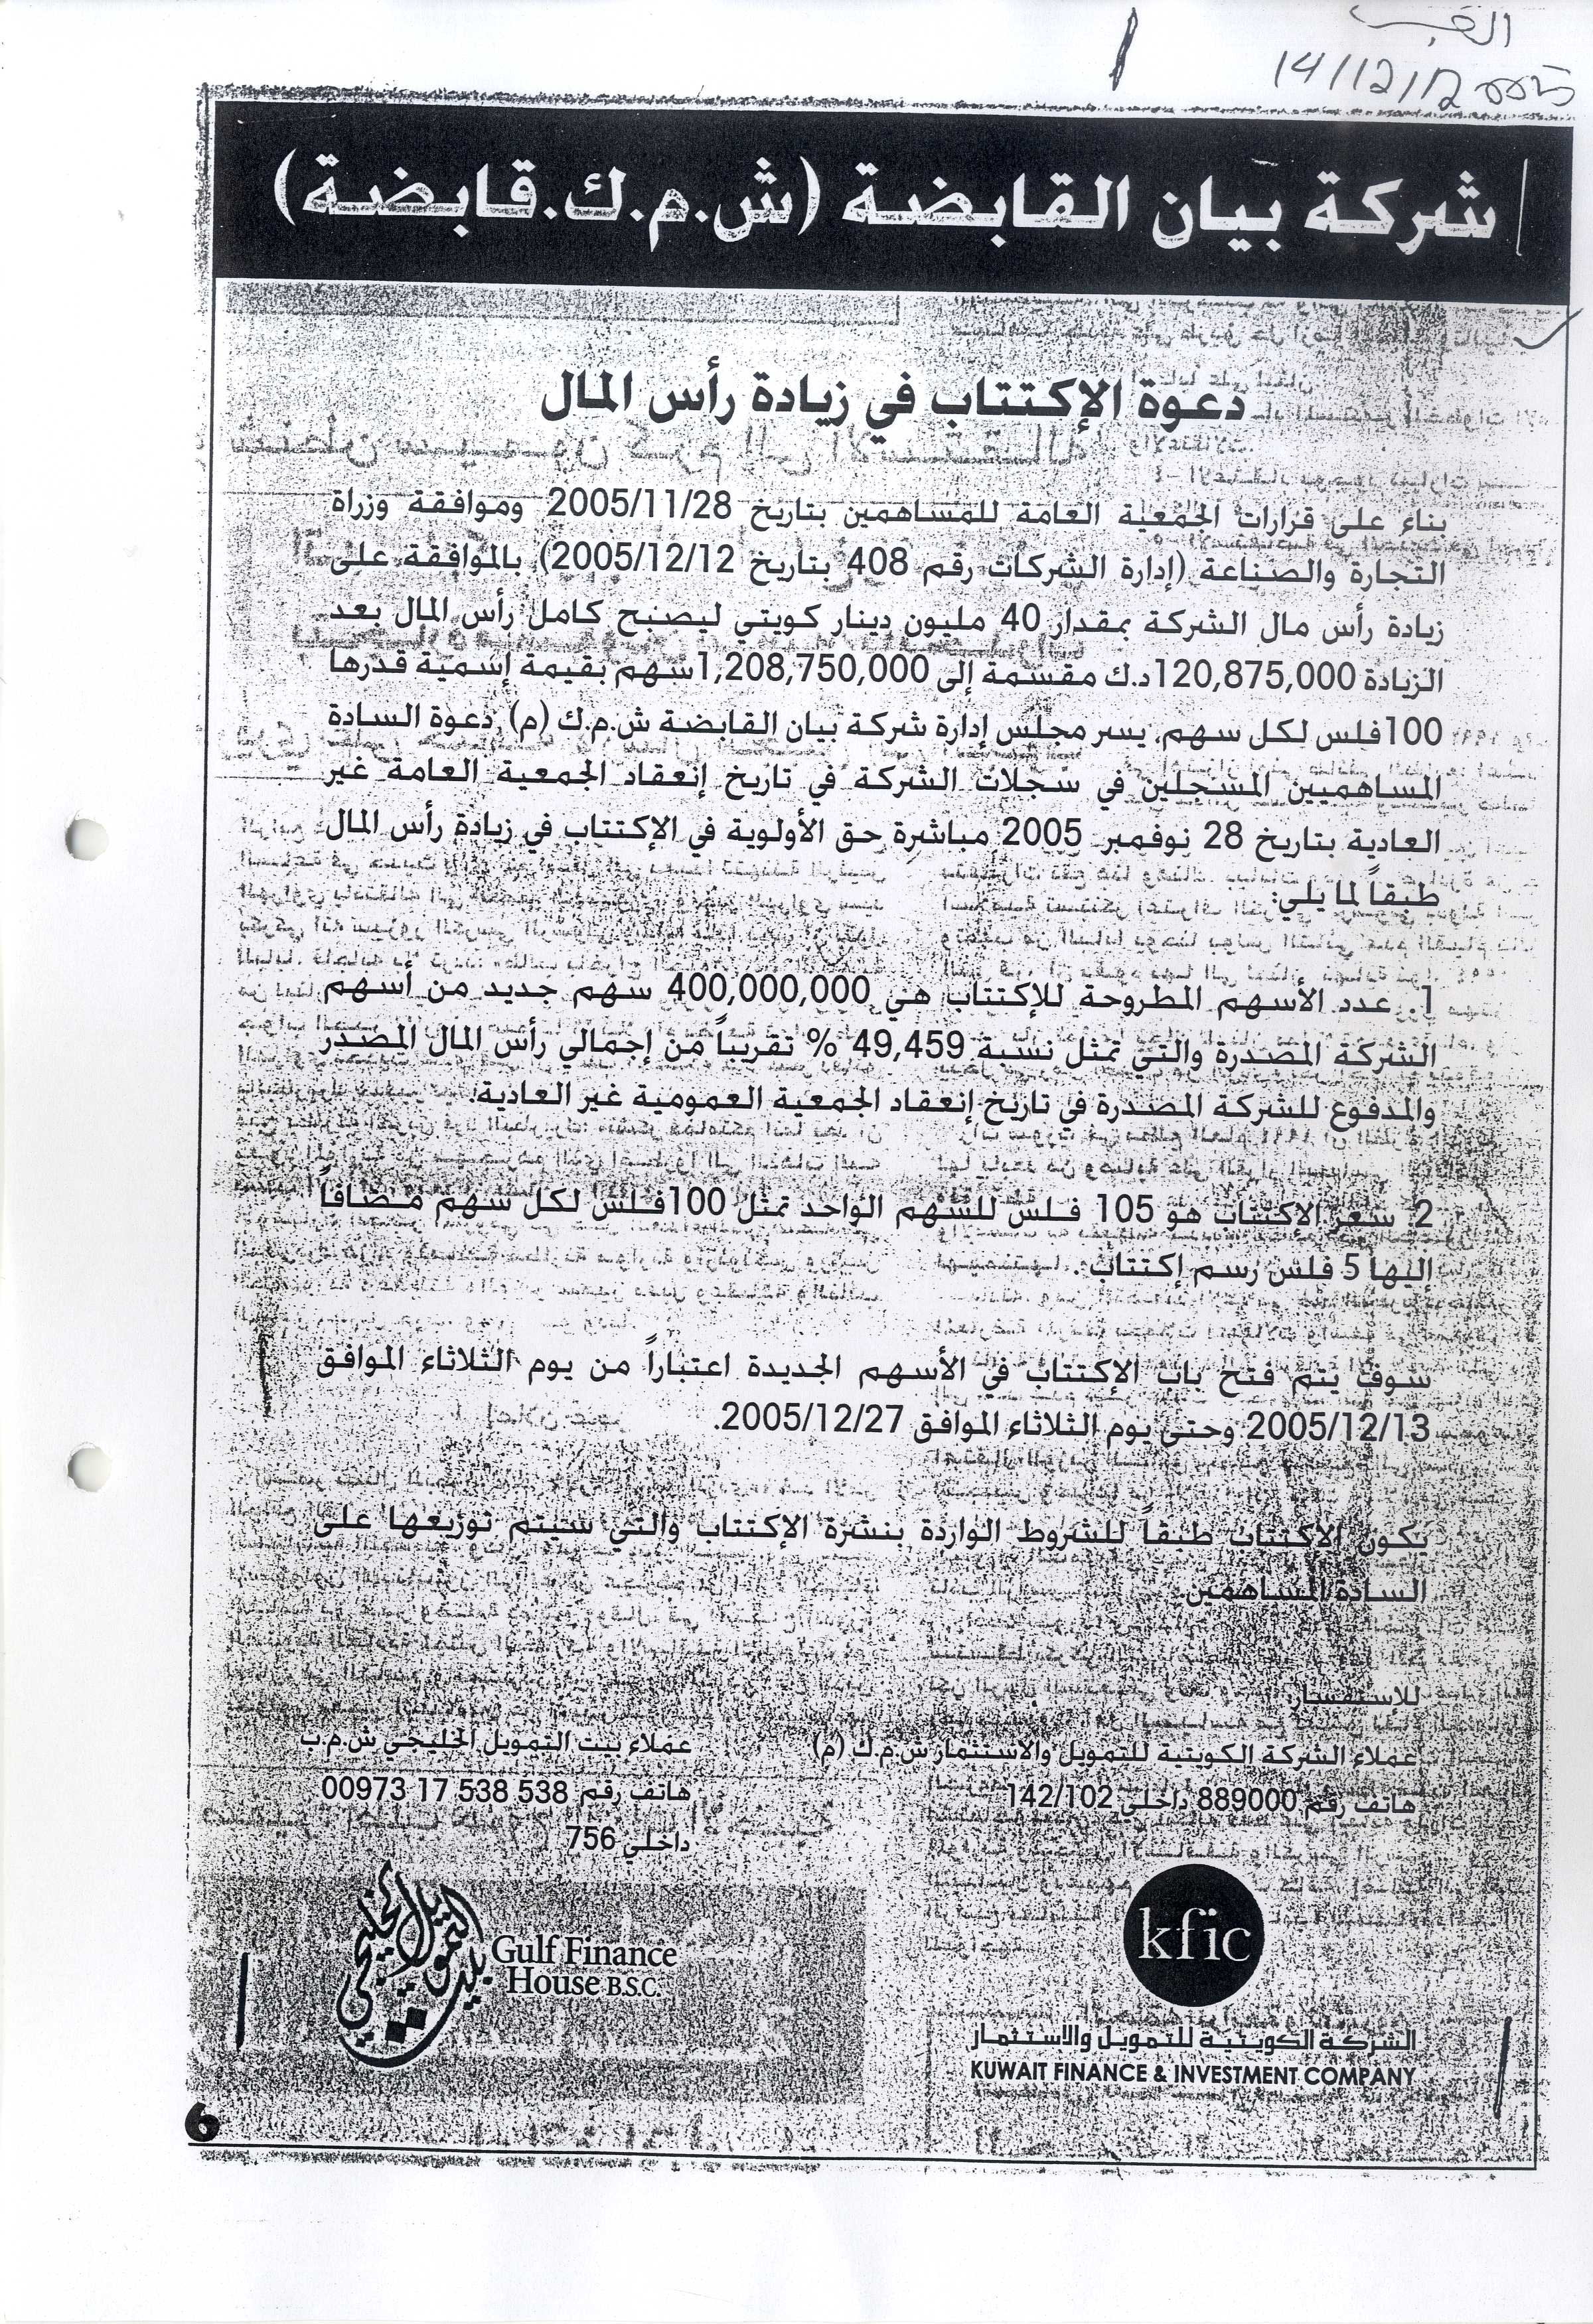 القبس
14/12/2005
شركة بيان القابضة (ش.م.ك.قابضة)
دعوة الإكتتاب في زيادة رأس المال
بناء على قرارات الجمعية العامة للمساهمين بتاريخ 2005/11/28 وموافقة وزراة
التجارة والصناعة (إدارة الشركات رقم 408 بتاريخ 2005/12/12) بالموافقة على
زيادة رأس مال الشركة بمقدار 40 مليون دينار كويتي ليصبح كامل رأس المال بعد
الزيادة 120,875,000د.ك مقسمة إلى 1,208,750,000سهم بقيمة إسمية قدرها
100فلس لكل سهم. يسر مجلس إدارة شركة بيان القابضة ش.م.ك (م) دعوة السادة
المساهميين المسجلين في سجلات الشركة في تاريخ إنعقاد الجمعية العامة غير
العادية بتاريخ 28 نوفمبر 2005 مباشرة حق الأولوية في الإكتتاب في زيادة رأس المال
طبقاً لما يلي:
1. عدد الأسهم المطروحة للإكتتاب هي 400,000,000 سهم جديد من أسهم
الشركة المصدرة والتي تمثل نسبة 49,459 % تقريباً من إجمالي رأس المال المصدر
والمدفوع للشركة المصدرة في تاريخ إنعقاد الجمعية العمومية غير العادية.
2. سعر الإكتتاب هو 105 فلس للسهم الواحد تمثل 100فلس لكل سهم مضافاً
إليها 5 فلس رسم إكتتاب.
سوف يتم فتح باب الإكتتاب في الأسهم الجديدة اعتباراً من يوم الثلاثاء الموافق
2005/12/13 وحتى يوم الثلاثاء الموافق 2005/12/27.
يكون الإكتتاب طبقاً للشروط الواردة بنشرة الإكتتاب والتي سيتم توزيعها على
السادة المساهمين.
للإستفسار:
عملاء الشركة الكويتية للتمويل والاستثمار ش.م.ك (م)
هاتف رقم 889000 داخلي 142/102
عملاء بيت التمويل الخليجي ش.م.ب
هاتف رقم 538 538 17 00973
داخلي 756
kfic
الشركة الكويتية للتمويل والاستثمار
KUWAIT FINANCE & INVESTMENT COMPANY
بيت التمويل الخليجي
Gulf Finance
House B.S.C.
6